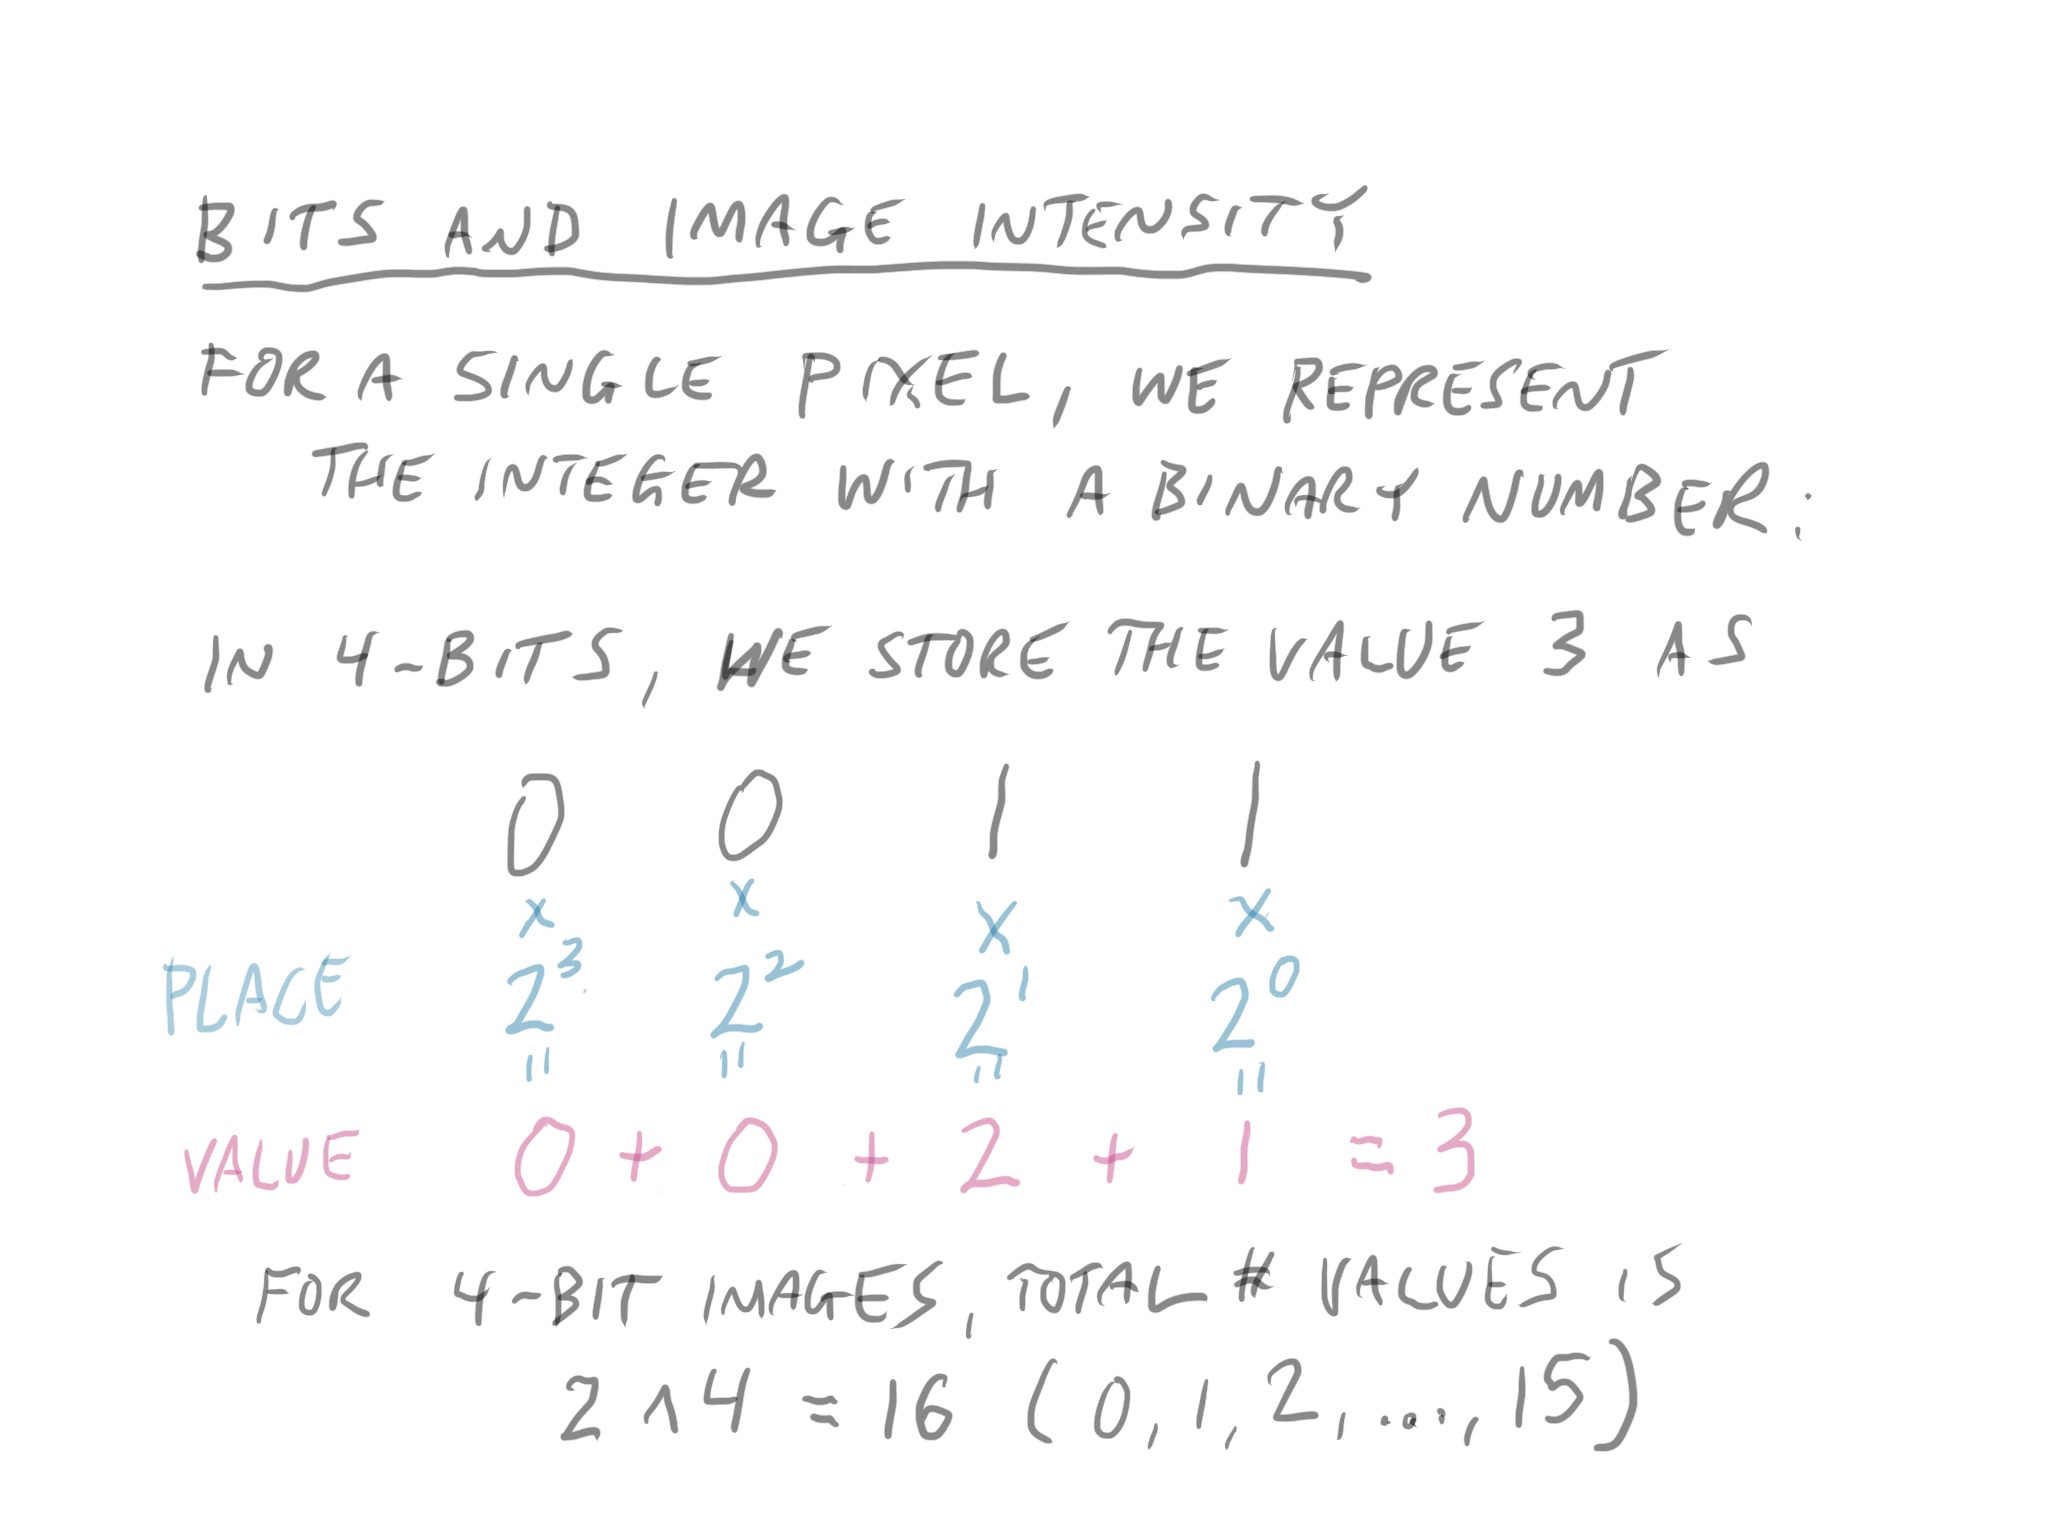 BITS AND IMAGE INTENSITY
FOR A SINGLE PIXEL, WE REPRESENT
THE INTEGER WITH A BINARY NUMBER:
IN 4-BITS, WE STORE THE VALUE 3 AS
0 0 1 1
x x x x
PLACE 2^3 2^2 2^1 2^0
= = = =
VALUE 0 + 0 + 2 + 1 = 3
FOR 4-BIT IMAGES, TOTAL # VALUES IS
2^4 = 16 (0, 1, 2, ..., 15)